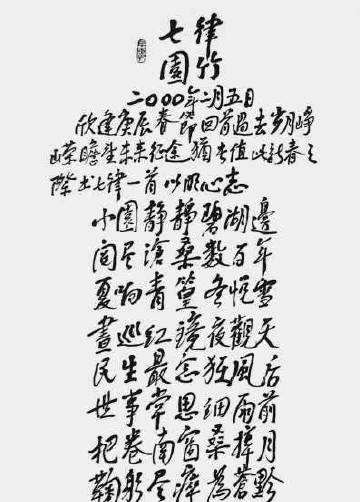 七律
園竹
二〇〇〇年二月五日
欣逢庚辰春節回首過去岁月崢
嶸瞻望未来征途猶长值此新春之
際书七律一首以明心志
小園静静碧湖邊
阅尽滄桑数百年
夏响青篁冬悦雪
晝巡红鏡夜觀天
民生最念狂風后
世事常思细雨前
把卷南窗桑梓月
鞠躬尽瘁為蒼黔